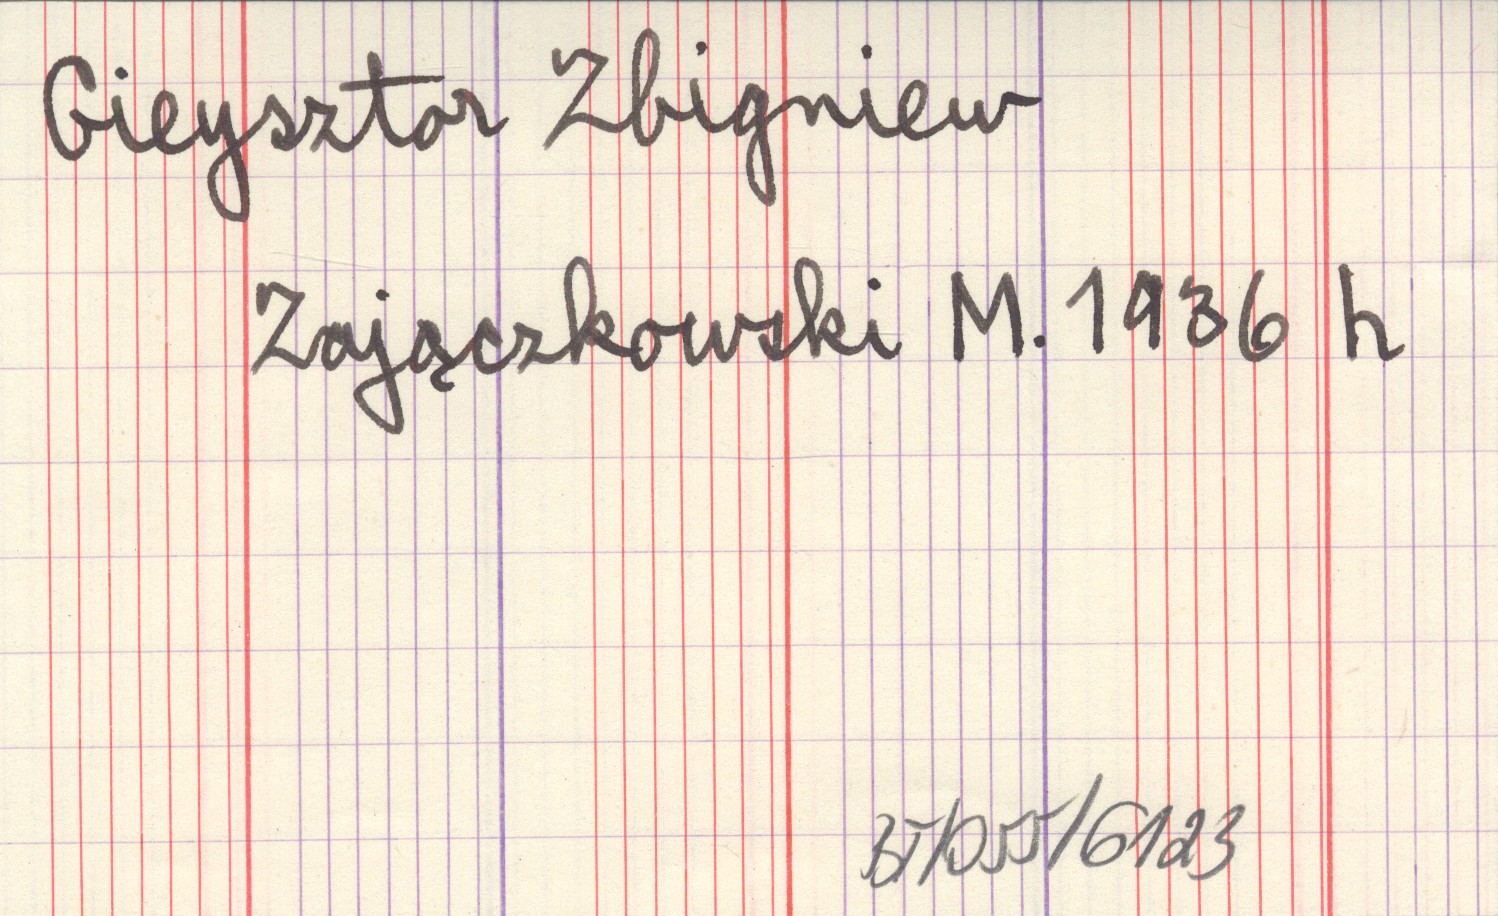 Gieysztor Zbigniew
Zajączkowski M. 1936 h
35/D55/6123